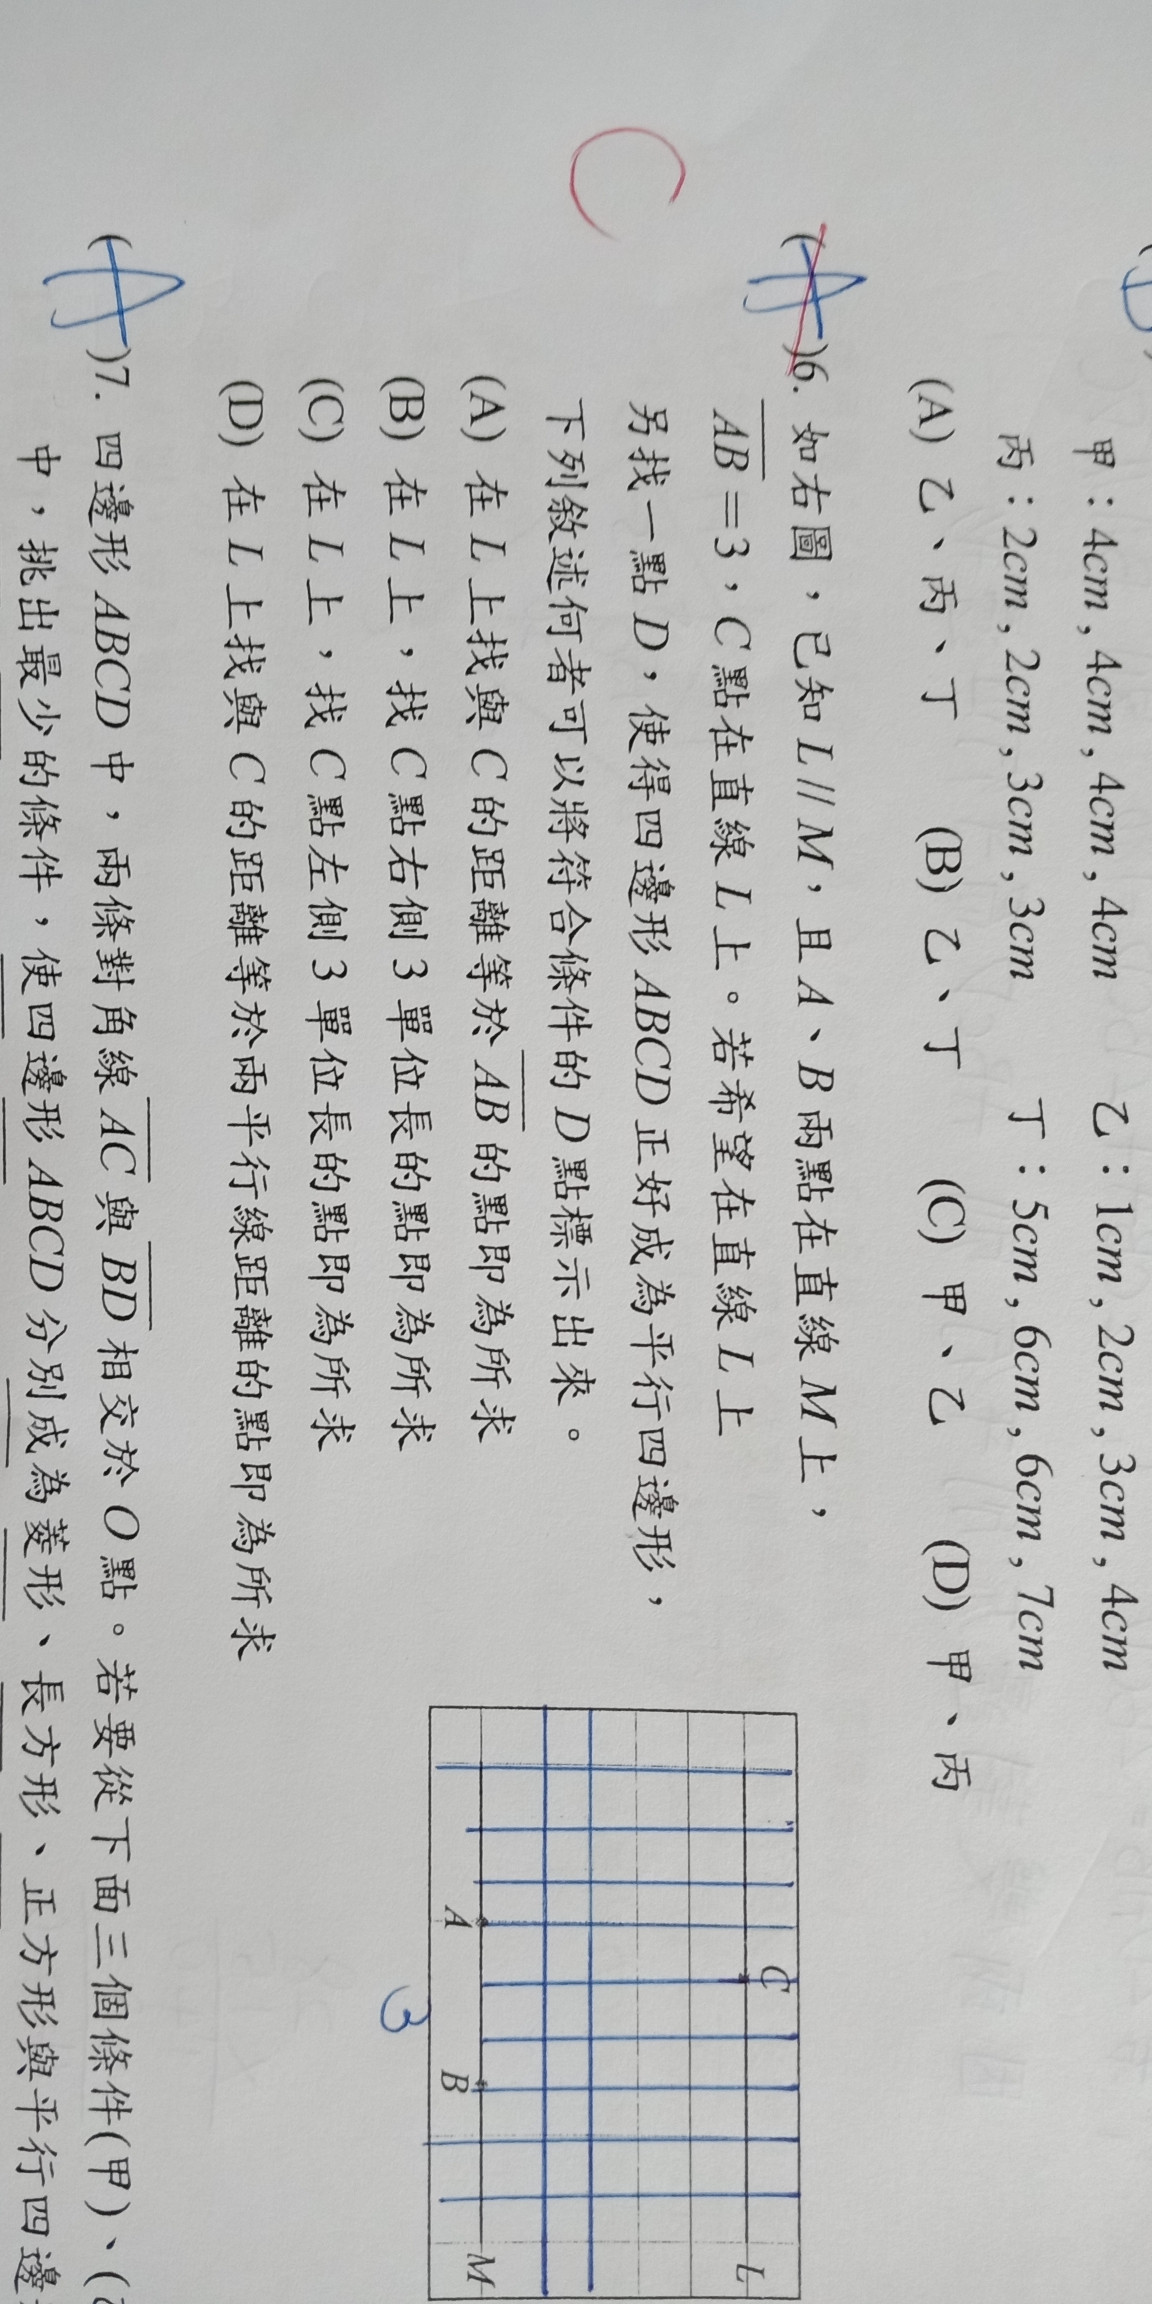 甲：4cm，4cm，4cm，4cm 乙：1cm，2cm，3cm，4cm
丙：2cm，2cm，3cm，3cm 丁：5cm，6cm，6cm，7cm
(A) 乙、丙、丁 (B) 乙、丁 (C) 甲、乙 (D) 甲、丙
(A)6. 如右圖，已知 L // M，且 A、B 兩點在直線 M 上，
AB＝3，C 點在直線 L 上。若希望在直線 L 上
另找一點 D，使得四邊形 ABCD 正好成為平行四邊形，
C
下列敘述何者可以將符合條件的 D 點標示出來。
(A) 在 L 上找與 C 的距離等於 AB 的點即為所求
(B) 在 L 上，找 C 點右側 3 單位長的點即為所求
(C) 在 L 上，找 C 點左側 3 單位長的點即為所求
(D) 在 L 上找與 C 的距離等於兩平行線距離的點即為所求
C
L
A
B
M
3
(A)7. 四邊形 ABCD 中，兩條對角線 AC 與 BD 相交於 O 點。若要從下面三個條件(甲)、(
中，挑出最少的條件，使四邊形 ABCD 分別成為菱形、長方形、正方形與平行四邊